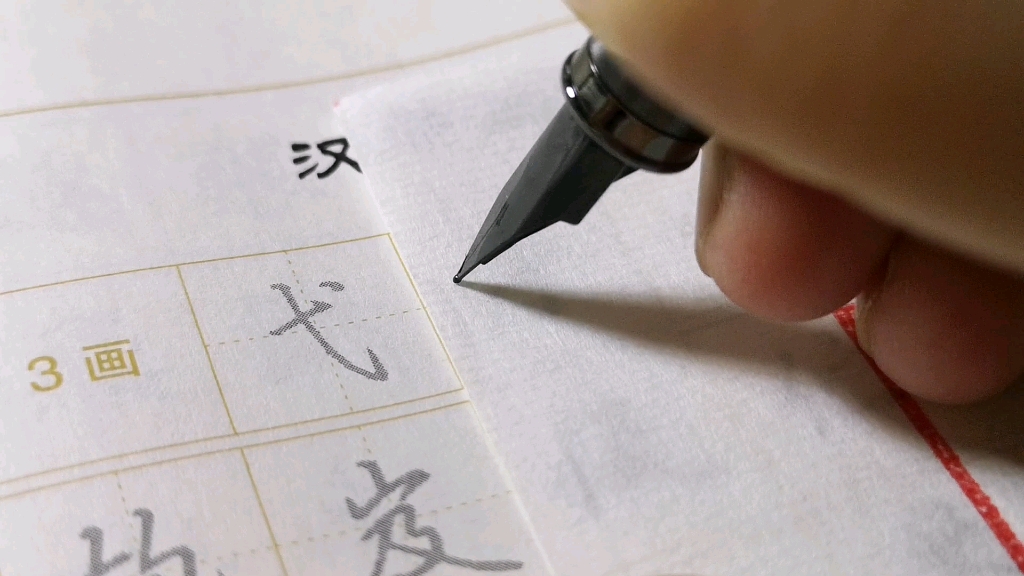 汉
3画 弋
岌